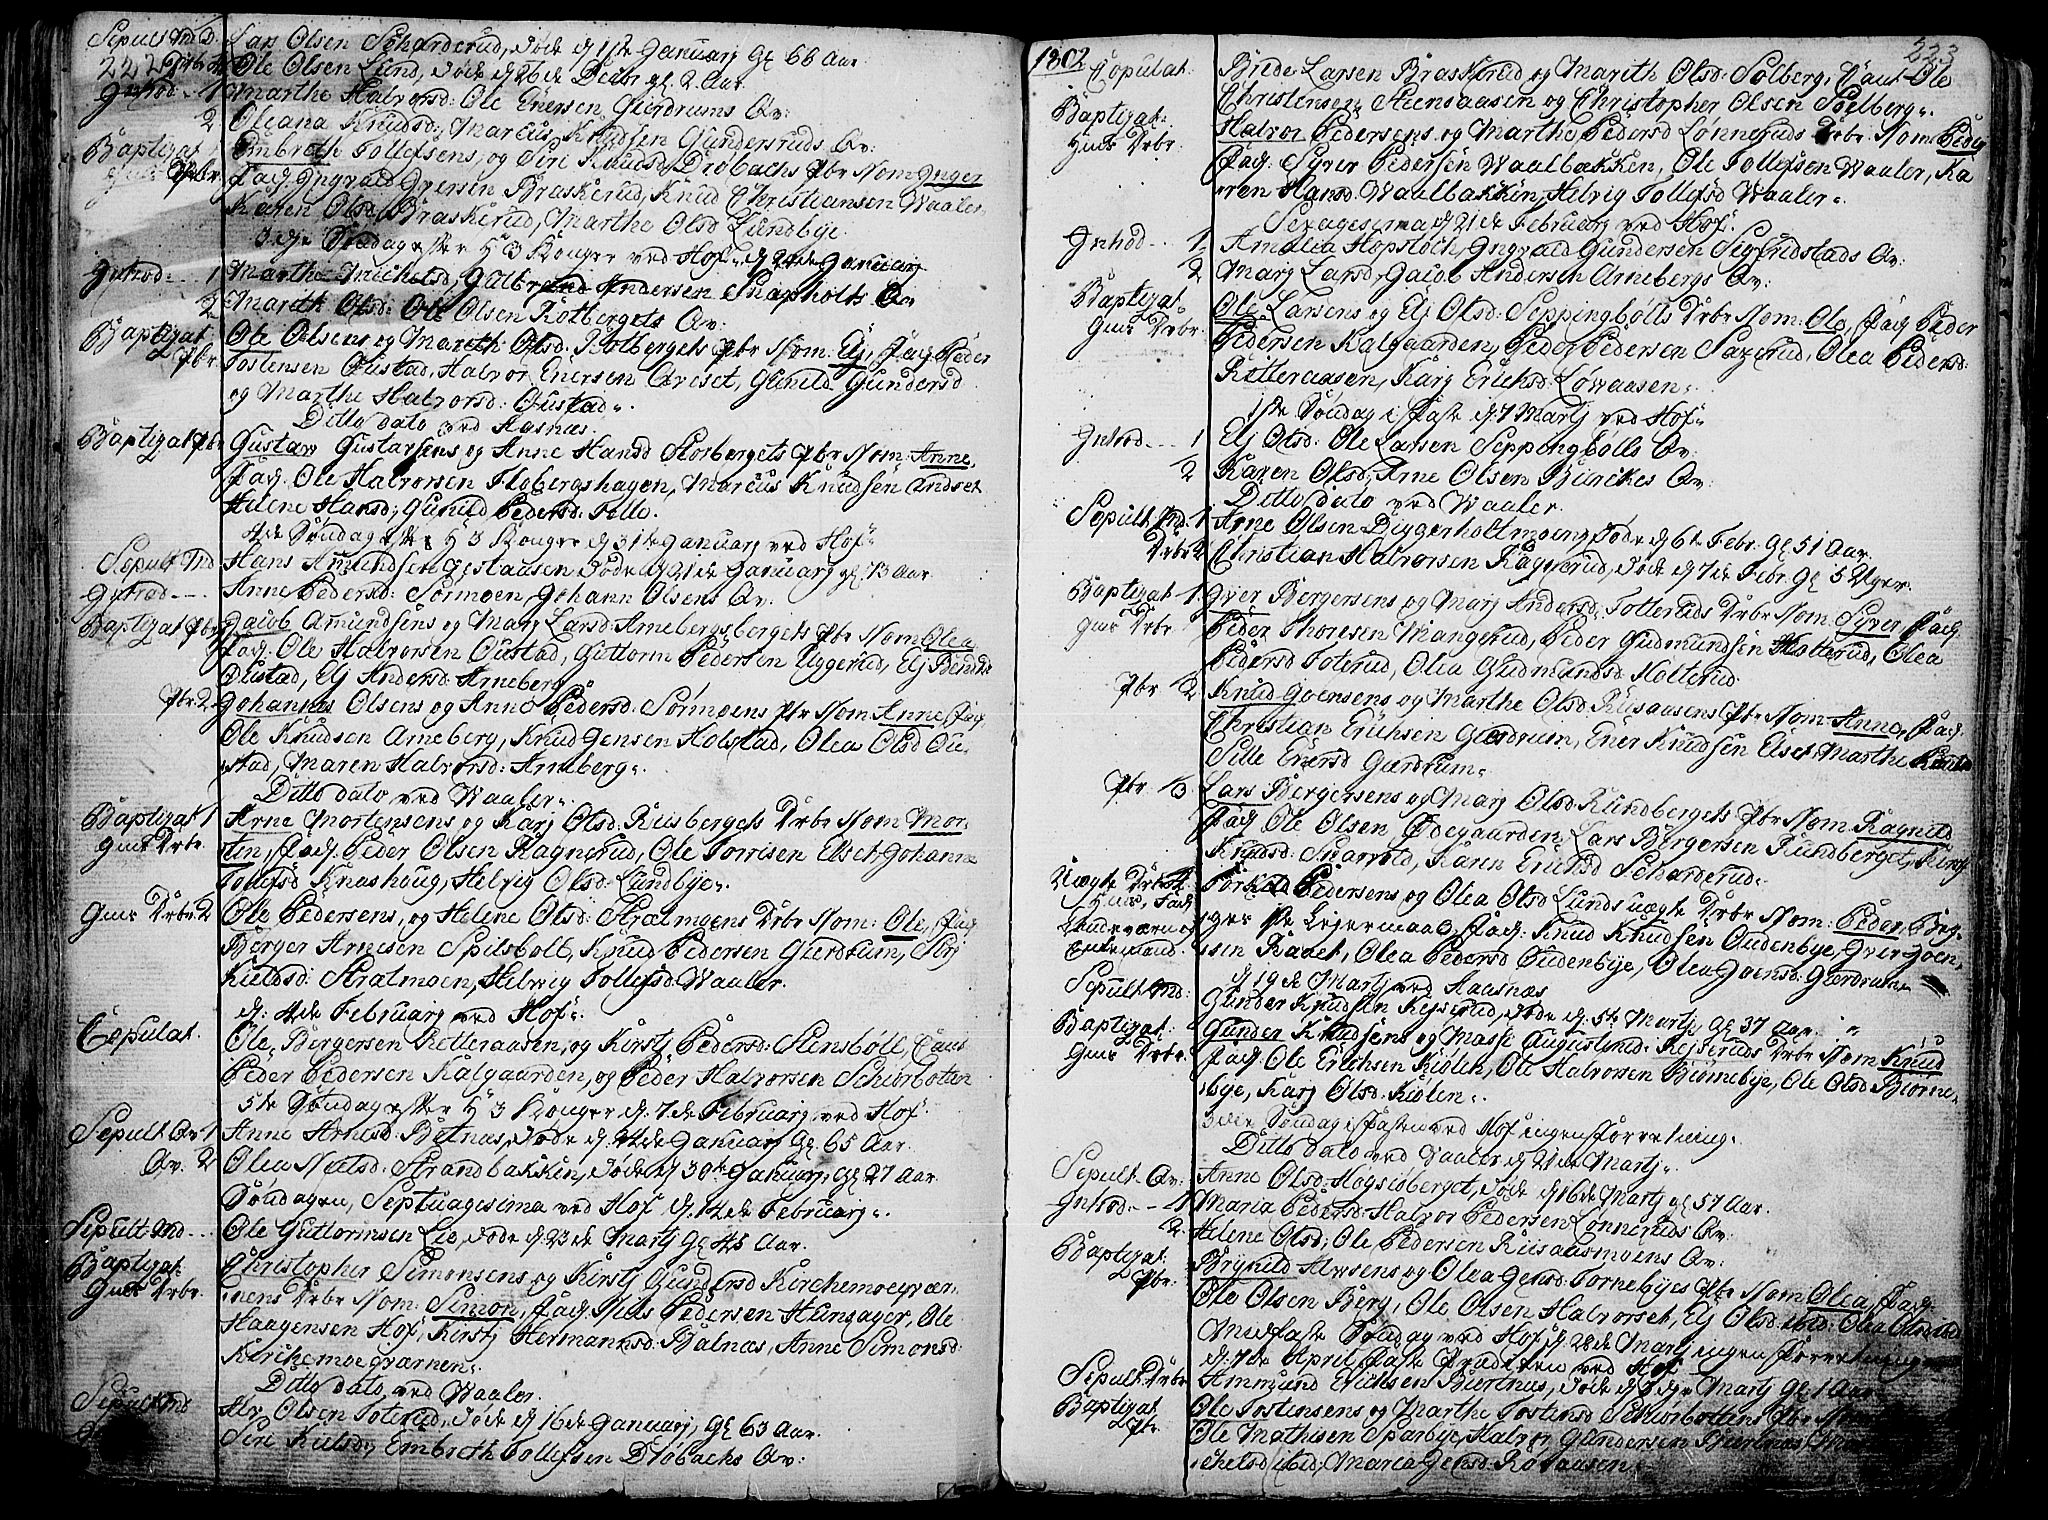 Sepult Md D. Lars Olsen Scharderud, døde d. 11te Januarj gl. 66 Aar
222 Drb. Ole Olsen Lund, døde d. 26de Decbr gl. 2 Aar
Introd. 1 Marthe Halvorsd: Ole Enersen Gierdrums Qv:
2 Oleana Knudsd: Marcus Knudsen Gundersruds Qv:
Baptizat Embreth Tollefsens, og Siri Knudsd Drøbachs Pbr Nom: Inger
Pbr. Fad: Ingvald Iversen Braskerud, Knud Christiansen Waaler
Karen Olsd Braskerud, Marthe Olsd Lundbye.
3die Søndag efter H 3 Konger ved Hof d. 24de Januarj
Introd. 1 Marthe Michelsd, Gulbrand Andersen Snapholts Qv
2 Mareth Olsd: Ole Olsen Rotbergets Qv:
Baptizat Ole Olsens og Mareth Olsd. Rotbergets Pbr Nom: Elj, Fad: Peder
Pbr. Tostensen Oustad, Halvor Enersen Qveset, Gunild Gundersd
og Marthe Halvorsd: Oustad.
Ditto dato ved Aasnæs.
Baptizat Pbr Gustav Gustavsens og Anne Hansd Storbergets Pbr Nom: Anne,
Fad. Ole Halvorsen Flobergshagen, Marcus Knudsen Andset
Helene Hansd; Gunild Pedersd: Tolle.
4de Søndag efter H 3 Konger d. 31te Januarj ved Hof
Sepult Md Hans Amundsen Gestaasen døde d. 21de Januarj gl. 73 Aar.
Introd. Anne Pedersd: Sørmoen, Johann Olsens Qv:
Baptizat Pbr Jacob Amundsens og Marj Larsd: Arnebergsbergets Pbr Nom Olea
Fad: Ole Halvorsen Oustad, Guttorm Pedersen Uggerud, Elj Bendixd
Oustad, Elj Andersd: Arneberg
Pbr. 2 Johannes Olsens og Anne Pedersd: Sørmoens Pbr Nom Anne, Fad:
Ole Knudsen Arneberg, Knud Jensen Holstad, Olea Olsd Ou-
stad, Maren Halvorsd: Arneberg.
Ditto dato ved Waaler.
Baptizat 1 Arne Mortensens og Karj Olsd: Riisbergets Drbr Nom: Mor-
Gmr Drbr. ten, Fad: Peder Olsen Ragnerud, Ole Torrisen Elset, Johanne
Tollefsd Knashoug, Helvig Olsd: Lundbye.
Gmr Drbr. 2 Ole Pedersens, og Helene Olsd: Stralmoens Drbr Nom: Ole, Fad:
Berger Arnesen Spilsbolt, Knud Pedersen Gierdrum, Sirj
Kieldsd: Stralmoen, Helvig Tollefsd: Waaler.
d: 4de Februarj ved Hof.
Copulat. Ole Bergersen Retteraasen, og Kirstj Pedersd: Stensbøll, Caut
Peder Pedersen Kalgaarden, og Peder Halvorsen Schiørbotten
5te Søndag efter H 3 Konger d. 7de Februarj ved Hof.
Sepult Qv 1 Anne Arnesd: Betnæs, døde d: 22de Januarj gl 65 Aar.
Qv. 2 Olea Nielsd: Strandbakken, døde d. 30te Januarj, gl. 27 Aar
Søndagen, Septuagesima ved Hof d. 14de Februarj.
Sepult Md Ole Guttormsen Lie, døde d. 23de Martj gl 45 Aar.
Baptizat Christopher Simonsens og Kirstj Gundersd Kirchemoeqvær-
Gmr Drbr. nens Drbr Nom: Simon, Fad. Niels Pedersen Heinsager, Ole
Haagensen Hof, Kirstj Hermansd: Balnæs, Anne Simonsd:
Kirchemoeqværnen.
Ditto dato, ved Waaler.
Sepult Md Olsen Toterud, døde d. 16de Januarj, gl 63 Aar.
Siri Kielsd; Embreth Tollefsen Drøbachs Qv:
1802 523
Copulat. Brede Larsen Braskerud og Marith Olsd: Solberg, Caut Ole
Christensen Steensaasen og Christopher Olsen Soelberg.
Baptizat. Halvor Pedersens og Marthe Pedersd Lønneruds Drbr Nom: Peder
Gmr Drbr. Fad. Syver Pedersen Waalbakken, Ole Tollefsen Waaler, Ka
ren Hansd. Waalbakken, Helvig Tollefsd Waaler.
Sexagesima d. 21de Februarj ved Hof.
Introd. 1 Amalia Hopstoch, Ingvald Gundersen Sigfredstads Qv:
2 Marj Larsd: Jacob Andersen Arnebergs Qv:
Baptizat Ole Larsens og Elj Olsd: Seppingbølls Drbr Nom: Ole, Fad Peder
Gmr Drbr. Pedersen Kalgaarden, Peder Pedersen Saxerud, Olea Pedersd:
Retteraasen, Karj Erichsd: Løvaasen.
1ste Søndag i Faste d. 7 Martj ved Hof
Introd. 1 Elj Olsd: Ole Larsen Seppingbølls Qv:
2 Karen Olsd; Arne Olsen Birckes Qv:
Ditto dato ved Waaler.
Sepult Md. 1 Arne Olsen Diggerholtmoen, døde d. 6te Febr. gl 51 Aar
Drbr 2 Christian Halvorsen Ragnerud, døde d. 7de Febr. gl 5 Uger.
Baptizat 1 Iver Bergersens og Marj Andersd: Totteruds Drbr Nom: Syver, Fad:
Gmr Drbr Peder Thoresen Mangerud, Peder Gudmundsen Holterud, Olea
Pedersd Toterud, Olea Gudmundsd: Holterud.
Pbr 2 Knud Joensens og Marthe Olsd Riisaasens Pbr Nom: Anne, Fad:
Christian Erichsen Gierdrum, Ener Knudsen Elset, Marthe
Sille Enersd Gierdrum.
Pbr 3 Lars Bergersens og Marj Olsd. Rundbergets Pbr Nom: Ragnild
Fad: Ole Olsen Ødegaarden, Lars Bergersen Rundberget, Kirstj
Knudsd: Snarvold, Karen Erichsd Scharderud.
Uægte Drbr 4 Torkild Pedersens og Olea Olsd Lunds uægte Drbr Nom: Peder, Beg-
ges 1ste Leyermaal, Fad: Knud Knudsen Oudenbye, Iver Joen
sen Raaet, Olea Pedersd Oudenbye, Olea Joensd: Gierdrum.
d. 19de Martj ved Aasnæs
Sepult Md: Gunder Knudsen Kejserud, døde d: 5te Martj, gl 37 Aar.
Baptizat: Gunder Knudsens og Masse Augustinid: Kejseruds Drbr Nom Knud
Gmr Drbr. Fad: Ole Erichsen Kiølen, Ole Halvorsen Biørnebye, Ole Olsd Biørne
bye, Karj Olsd: Kiølen.
3die Søndag i Fasten ved Hof ingen Forretning.
Ditto dato ved Vaaler d. 21de Martj.
Sepult Qv: Anne Olsd: Hogsiøberget, døde d. 16de Martj gl 57 Aar.
Introd. 1 Maria Pedersd: Halvor Pedersen Lønneruds Qv
2. Helene Olsd; Ole Pedersen Riisaasmoens Qv:
Baptizat Brynild Alvsens og Olea Jensd: Tornebyes Pbr Nom: Olea, Fad:
Pbr: Ole Olsen Berg, Ole Olsen Halvorset, Elj Olsd ibid: Olea Olsd
Midfaste Søndag ved Hof d. 28de Martj ingen Forretning
d. 7de April Faste Prædiken ved Hof
Sepult Drbr Ammund Erichsen Biertnæs, døde d. Martj gl 1 Aar
Baptizat Ole Tostensens og Marthe Tostensd Schiørbottens Pbr
Pbr. Ole Mathisen Sparbye, Halvor Gundersen Biertnæs
ichelsd ibid; Maren Jensd: Raaaasen